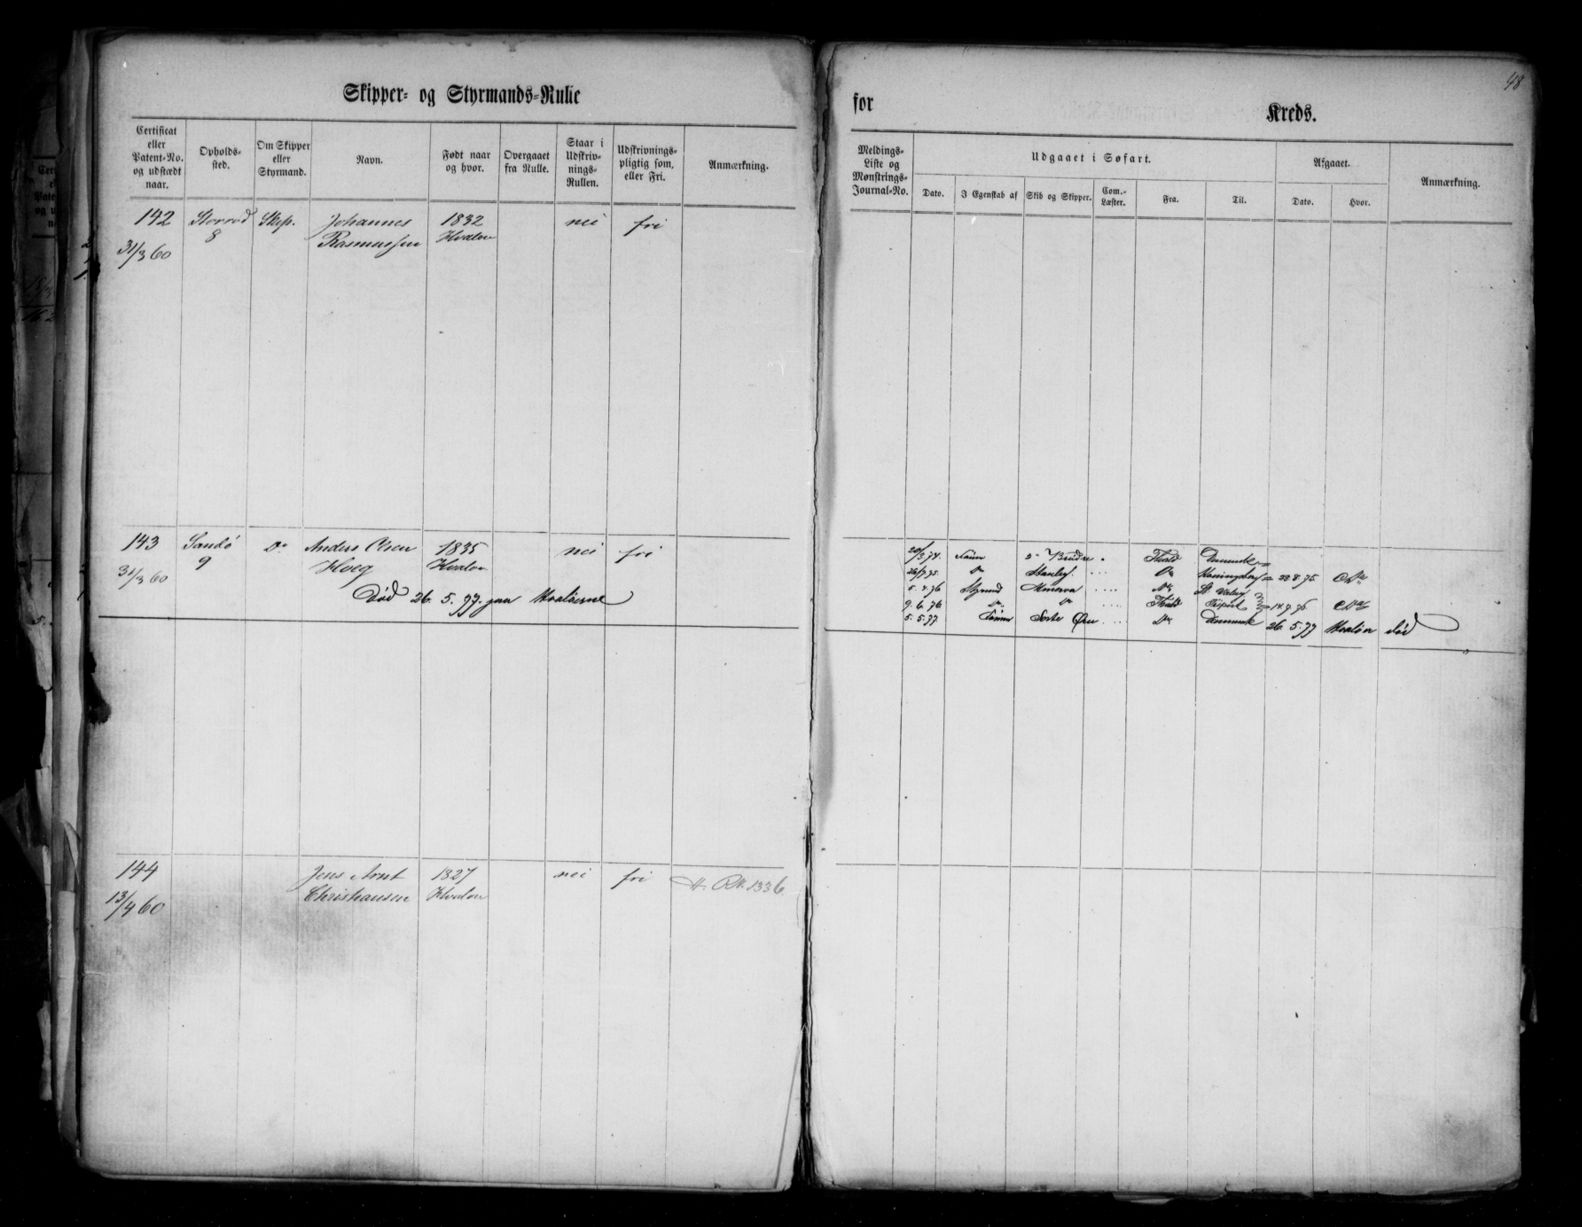 Skipper- og Styrmands-Rulle
for Kreds.
48
Certificat eller Patent-No. og udstædt naar.
Opholds-sted.
Om Skipper eller Styrmand.
Navn.
Født naar og hvor.
Overgaaet fra Rulle.
Staar i Udskriv-nings-Rullen.
Udskrivnings-pligtig som, eller Fri.
Anmærkning.
Meldings-Liste og Mønstrings-Journal-No.
Udgaaet i Søfart.
Dato.
I Egenskab af
Skib og Skipper.
Com.-Læster.
Fra.
Til.
Afgaaet.
Dato.
Hvor.
Anmærkning.
142 Skip. Johannes 1832 nei fri
31/3 60 8 Rasmussen Hvaler
143 Sandø Do Anders Olsen 1835 nei fri
31/3 60 9 Hoeg Hvaler
Død 26. 5. 77. paa Hvaløerne
20/3 74. Brødre Fhald Danmark
Do Stanley Do 22 8 75
5. 4. 76 Styrmd Minerva Do St.
9. 6. 76 Do Do Fhald 14 9 76
5. 5. 77 Sorte Ørn Do Danmark 26. 5. 77 Hvaløer død
144 Jens Arnt 1827 nei fri 1336
13/4 60 Christiansen Hvaløer